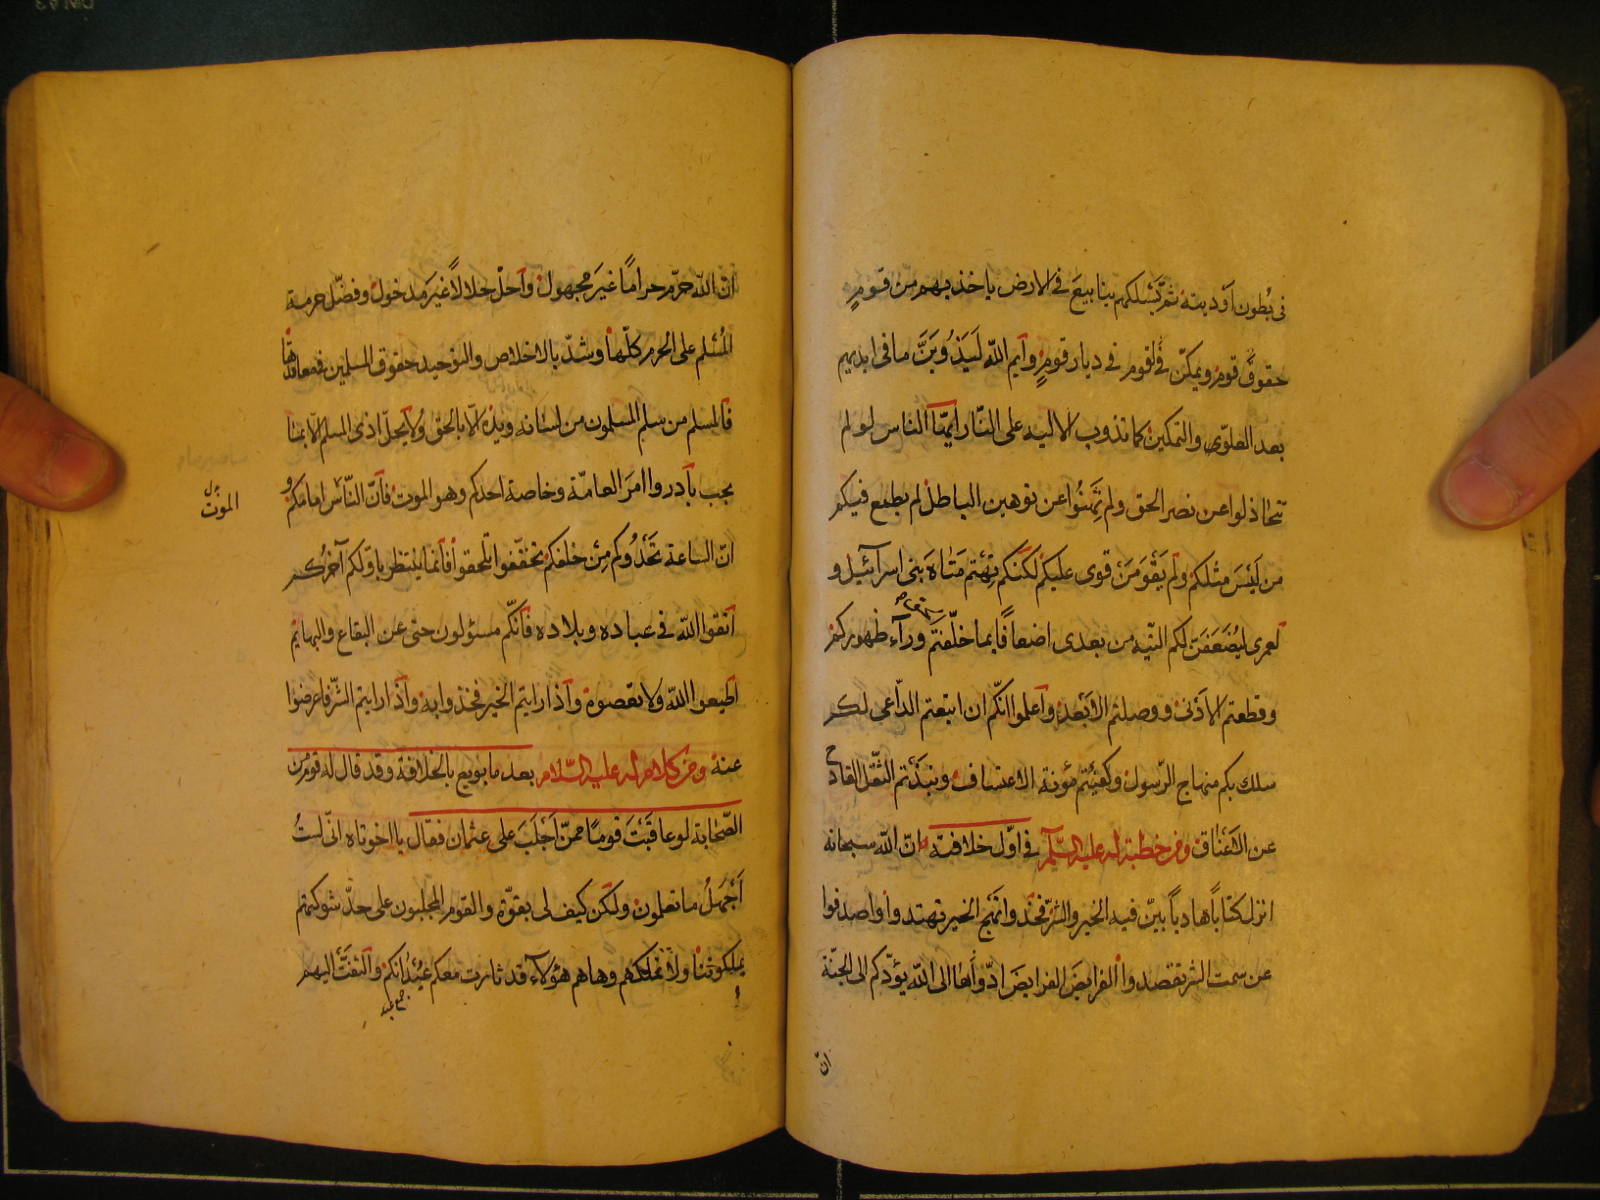 فى بُطون اَوديته ثمّ يَسلكهم ينابيعَ فى الارض ياخذ بهم من قومٍ
حقوقَ قومٍ ويمكّن لقوم فى ديار قومٍ وايم اللّه لَيَذُوبَنَّ ما فى ايديهم
بعد العلوّ والتمكين كما تذوب الالية على النّار ايّها الناس لو لم
تتخاذلوا عن نصر الحق ولم تَهِنُوا عن توهين الباطل لم يطمع فيكم
من لَيْسَ مثلكم ولم يَقْوَ مَنْ قوى عليكم لكنّكم تِهْتم مَتاهَ بنى اسرآئيل و
لعمرى ليُضَعّفَنّ لكم التّيه من بعدى اضعافًا بما خلّفتم ورآء ظهوركم
وقطعتم الاَدنى ووصلتم الاَبْعد واعلموا انّكم ان اتبعتم الدّاعى لكم
سلك بكم منهاج الرّسول وكفيتم مؤنة الاعتساف ونبذتم الثّقل الفادح
عن الاَعْناق ومن خطبة له عليه السّلم فى اوّل خلافته انّ اللّه سبحانه
انزل كتاباً هادياً بيّن فيه الخير والشرّ فخذوا نَهْج الخير تهتدوا واصدفوا
عن سمت الشرّ تقصدوا الفرايضَ الفرايضَ ادّوها الى اللّه يؤدّكم الى الجنّة
انّ
انّ اللّه حرّم حرامًا غيرَ مجهول واَحلّ حلالاً غيرَ مدخول وفضّل حرمة
المُسْلم على الحرم كلّها وشدّ بالاخلاص والتوحيد حقوق المسلمين فى معاقدها
فالمسلم من سلم المسلمون من لسانه ويده الّا بالحق ولا يحلّ اذى المسلم الّا بما
يجب بادروا امرَ العامّة وخاصة احدكم وهو الموت فانّ النّاس امامكم و
الموت
انّ الساعة تَحْدُوكم مِن خلفكم تخففوا تلحقوا فانما ينتظر باوّلكم آخرُكم
اتقوا اللّه فى عباده وبلاده فانّكم مسئولون حتى عن البقاع والبهايم
اطيعوا اللّه ولا تعصوه واذا رايتم الخير فخذوا به واذا رايتم الشّر فاعرضوا
عنه ومن كلام له عليه السّلام بعد ما بويع بالخلافة وقد قال له قوم من
الصّحابة لو عاقَبْتَ قومًا ممن اَجْلَبَ على عثمان فقال يا اخوتاه انّى لستُ
اَجْهَلُ ما تعلمون ولكن كيف لى بقوّة والقوم المجلبون على حدّ شوكتهم
يملكوننا ولا نملكهم وهاهم هؤلاء قد ثارت معكم عُبْدَانكم والتفّتْ اليهم
جمع عبد